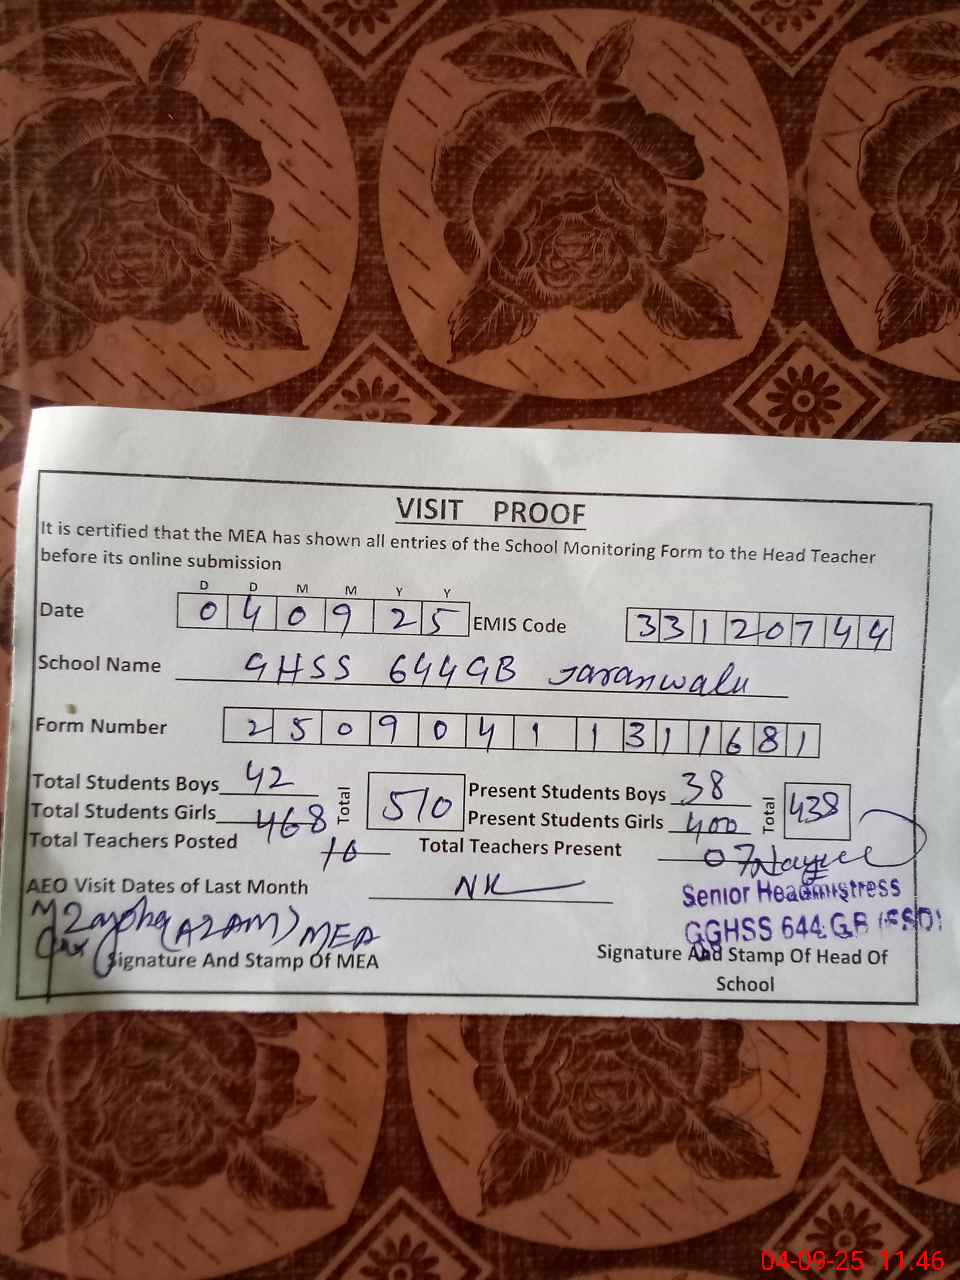 VISIT PROOF
It is certified that the MEA has shown all entries of the School Monitoring Form to the Head Teacher
before its online submission
D D M M Y Y
Date 0 4 0 9 2 5 EMIS Code 3 3 1 2 0 7 4 4
School Name GHSS 644GB Jaranwala
Form Number 2 5 0 9 0 4 1 1 3 1 1 6 8 1
Total Students Boys 42 Total 510 Present Students Boys 38 Total 438
Total Students Girls 468 Present Students Girls 400
Total Teachers Posted 10 Total Teachers Present 07
AEO Visit Dates of Last Month NK
Senior Headmistress
GGHSS 644 GB (FSD)
(AZAM) MEA
Signature And Stamp Of MEA
Signature And Stamp Of Head Of
School
04-09-25 11.46